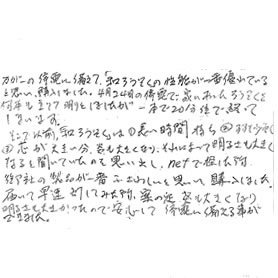 万が一の停電に備えて、「和ろうそくの性能が一番優れている
と思い、購入しました。4月24日の停電で、家にあったろうそくを
何本も立てて明りとしましたが一本で20分位で終って
しまいます。
そこで以前、和ろうそくは①長い時間持ち②
③芯が大きい分、炎も大きくなり、それによって明るさも大きく
なると聞いていたのを思い出し、netで探した所、
の製品が一番ふさわしいと思いて購入しました。
届いて早速 試してみた所、案の定 炎も大きくなり
明るさも大きかったので安心して停電に備える事が
できました。